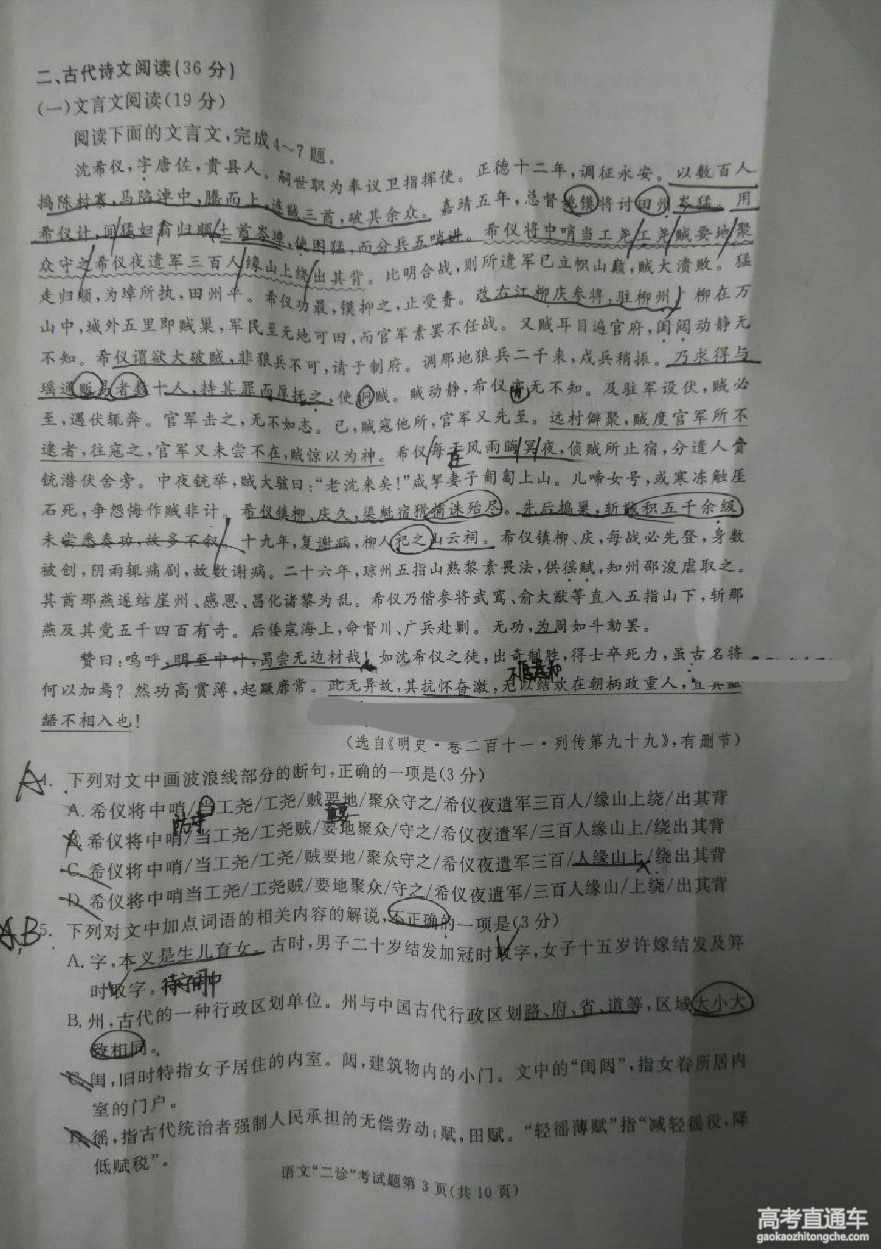 二、古代诗文阅读(36分)
(一)文言文阅读(19分)
阅读下面的文言文,完成4~7题。
沈希仪,字唐佐,贵县人。嗣世职为奉议卫指挥使。正德十二年,调征永安。以数百人
捣陈村寨,马陷淖中,腾而上,连馘三首,破其余众。嘉靖五年,总督姚镆将讨田州岑猛。用
希仪计,间猛妇翁归顺土酋岑璋,使图猛,而分兵五哨进。希仪将中哨当工尧工尧贼要地聚
众守之希仪夜遣军三百人缘山上绕出其背。比明合战,则所遣军已立帜山巅,贼大溃败。猛
走归顺,为璋所执,田州平。希仪功最,镆抑之,止受赉。改右江柳庆参将,驻柳州。柳在万
山中,城外五里即贼巢,军民至无地可田,而官军素罢不任战。又贼耳目遍官府,闺闼动静无
不知。希仪谓欲大破贼,非狼兵不可,请于制府。调那地狼兵二千来,戍兵稍振。乃求得与
瑶通贩易者数十人,持其罪而厚抚之,使诇贼。贼动静,希仪亦无不知。及驻军设伏,贼必
至,遇伏辄奔。官军击之,无不如志。已,贼寇他所,官军又先至。远村僻聚,贼度官军所不
逮者,往寇之,官军又未尝不在,贼惊以为神。希仪每于风雨晦冥夜,侦贼所止宿,分遣人赍
在
铳潜伏舍旁。中夜铳举,贼大骇曰:“老沈来矣!”咸挈妻子匍匐上山。儿啼女号,或寒冻触厓
石死,争怨悔作贼非计。希仪镇柳、庆久,渠魁宿猾捕诛殆尽。先后捣巢,斩馘积五千余级,
未尝悉奏功,故多不叙。十九年,复谢病,柳人祀之山云祠。希仪镇柳、庆,每战必先登,身数
被创,阴雨辄痛剧,故数谢病。二十六年,琼州五指山熟黎素畏法,供徭赋,知州邵浚虐取之。
其酋那燕遂结崖州、感恩、昌化诸黎为乱。希仪乃偕参将武鸾、俞大猷等直入五指山下,斩那
燕及其党五千四百有奇。后倭寇海上,命督川、广兵赴剿。无功,为周如斗劾罢。
赞曰:呜呼,明至中叶,曷尝无边材哉!如沈希仪之徒,出奇制胜,得士卒死力,虽古名将
何以加焉?然功高赏薄,起蹶靡常。此无异故,其抗怀奋激,无以结欢在朝柄政重人,宜其龃
龉不相入也!
(选自《明史·卷二百十一·列传第九十九》,有删节)
A
4. 下列对文中画波浪线部分的断句,正确的一项是(3分)
A. 希仪将中哨/当工尧/工尧/贼要地/聚众守之/希仪夜遣军三百人/缘山上绕/出其背
B. 希仪将中哨/当工尧/工尧贼/要地聚众/守之/希仪夜遣军/三百人缘山上/绕出其背
C. 希仪将中哨/当工尧/工尧/贼要地/聚众守之/希仪夜遣军三百/人缘山上/绕出其背
D. 希仪将中哨当工尧/工尧贼/要地聚众/守之/希仪夜遣军/三百人缘山/上绕/出其背
A,B
5. 下列对文中加点词语的相关内容的解说,不正确的一项是(3分)
A. 字,本义是生儿育女。古时,男子二十岁结发加冠时取字,女子十五岁许嫁结发及笄
时取字。
B. 州,古代的一种行政区划单位。州与中国古代行政区划路、府、省、道等,区域大小大
致相同。
C. 闺,旧时特指女子居住的内室。闼,建筑物内的小门。文中的“闺闼”,指女眷所居内
室的门户。
D. 徭,指古代统治者强制人民承担的无偿劳动;赋,田赋。“轻徭薄赋”指“减轻徭役,降
低赋税”。
语文“二诊”考试题第 3 页(共 10 页)
高考直通车
gaokaozhitongche.com